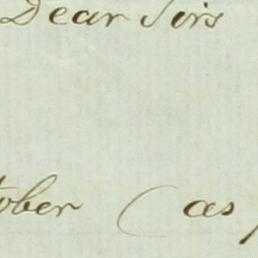 Dear Sirs
tober (as